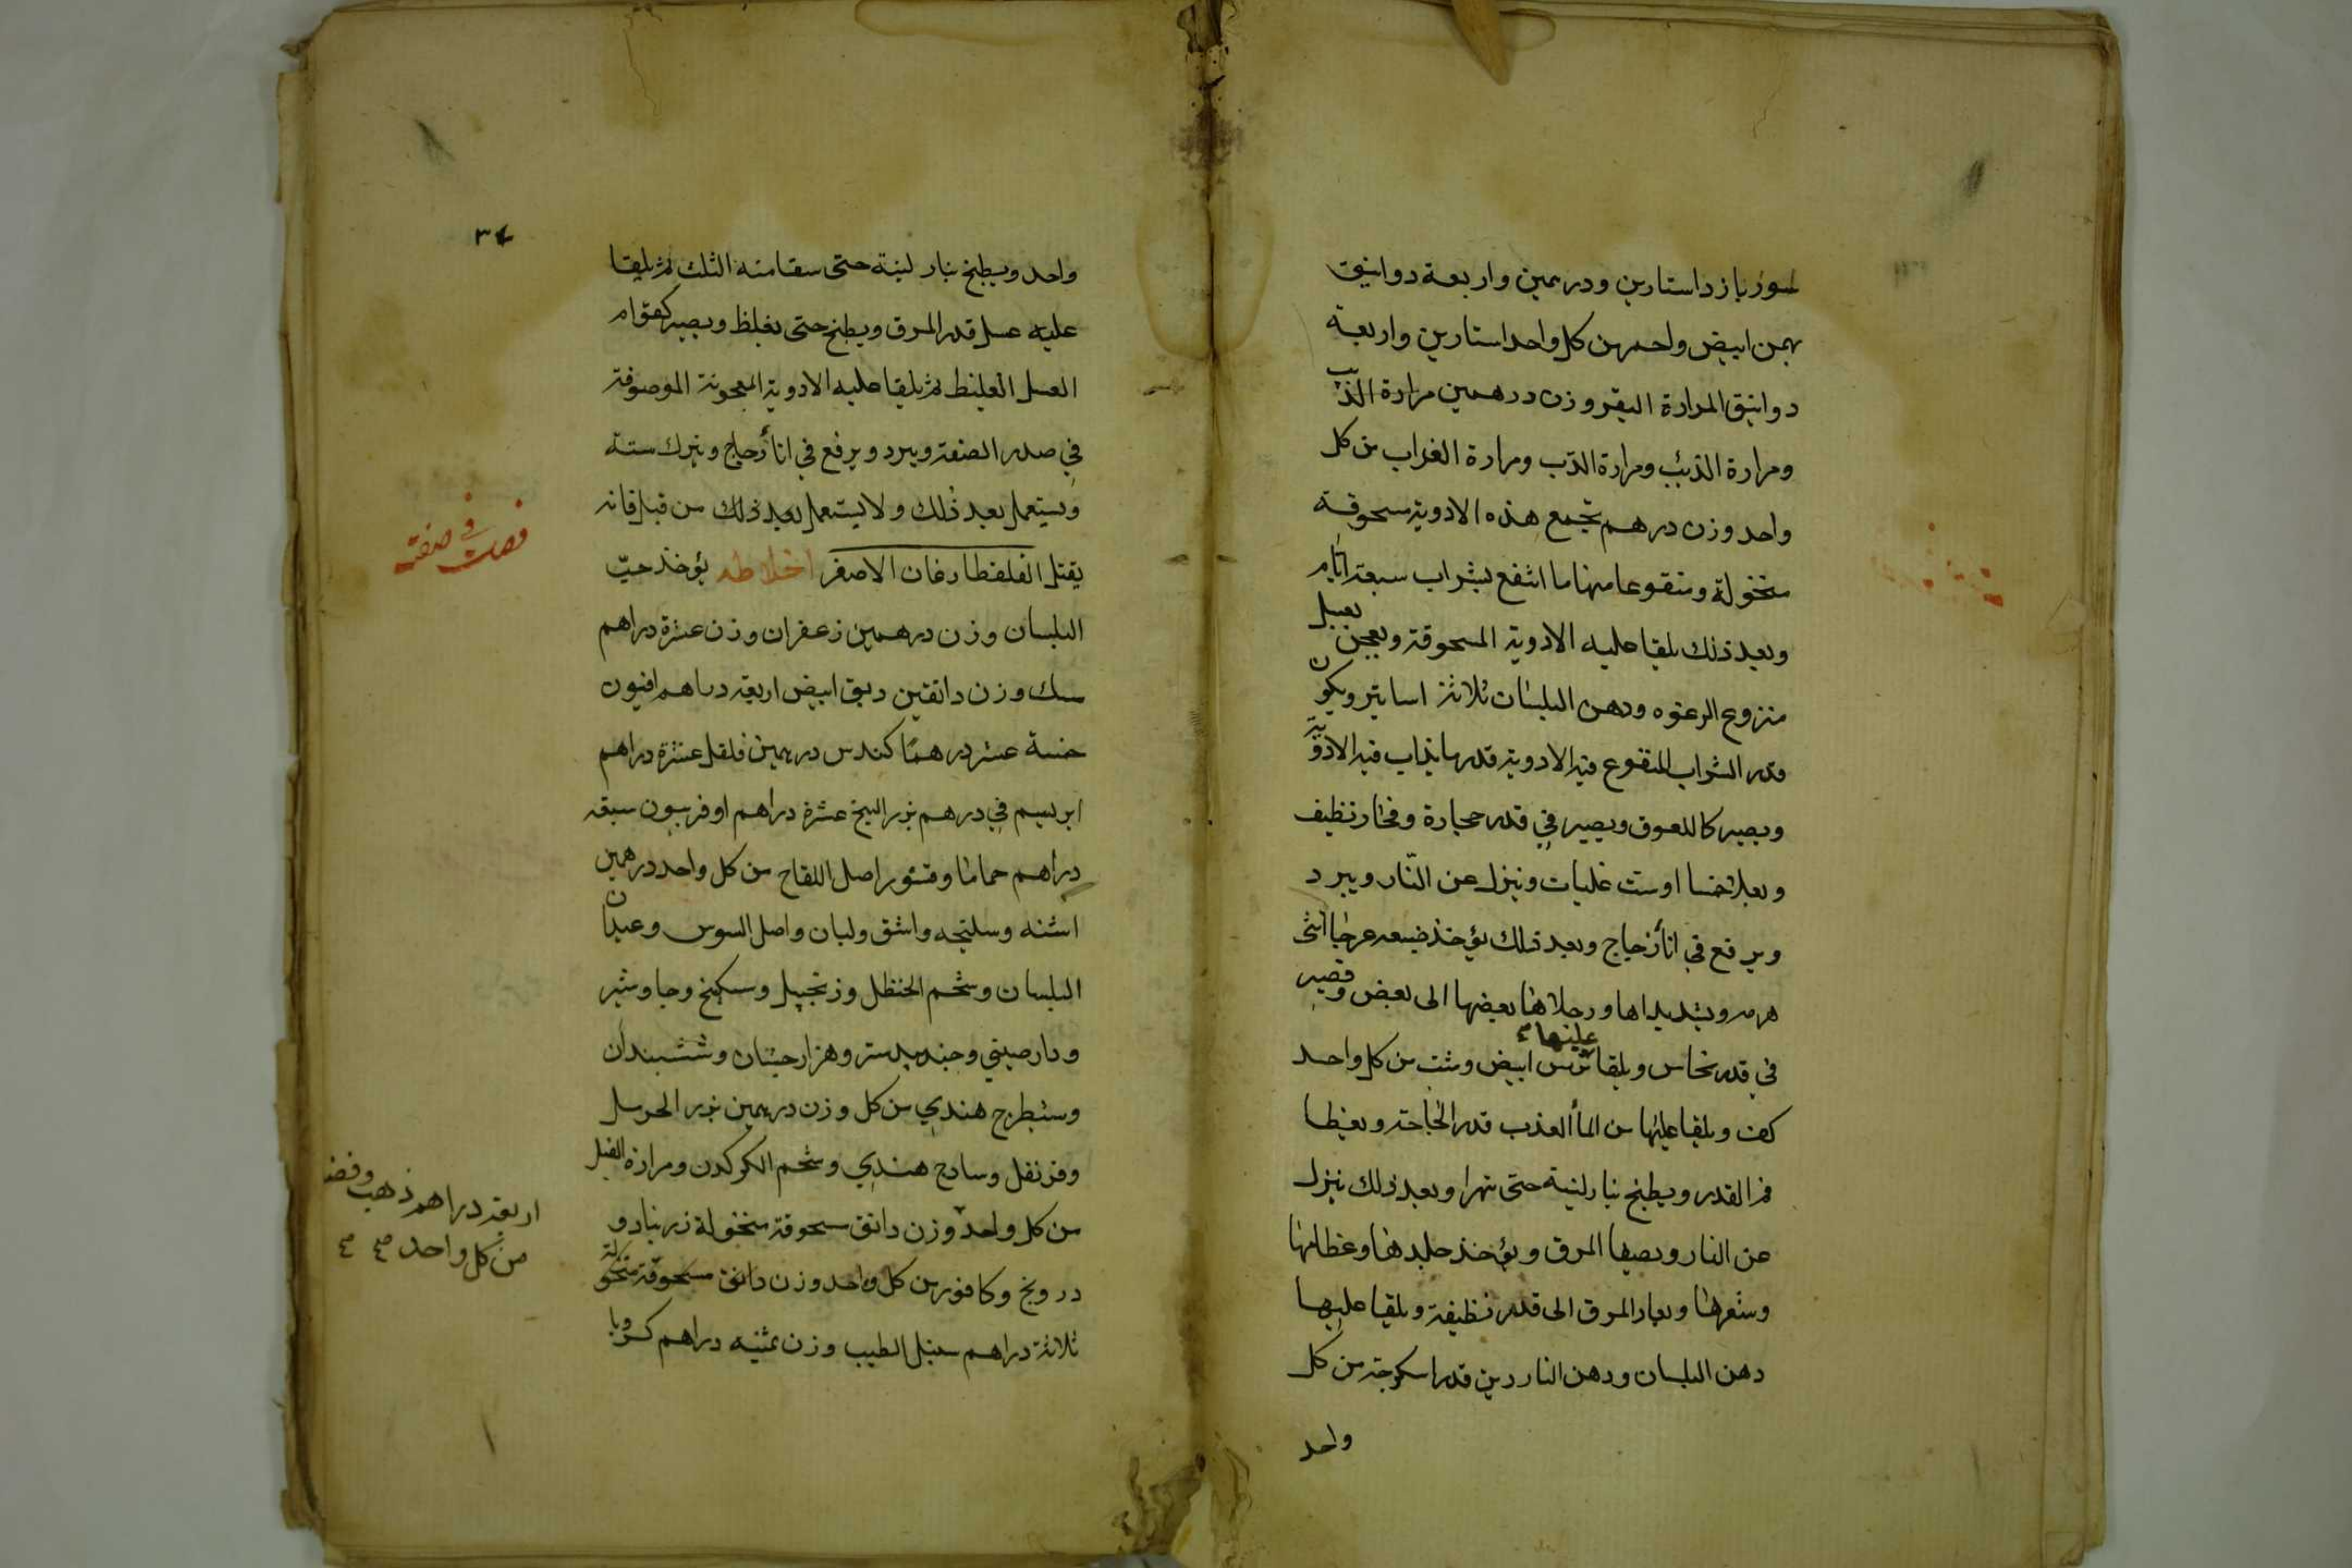 لسورباز داستارين ودرهمين واربعة دوانيق
بهمن ابيض واحمر من كل واحد استارين واربعة
دوانيق المرارة البقر وزن درهمين مرارة الذئب
ومرارة الذئب ومرارة الدب ومرارة الغراب من كل
واحد وزن درهم تجمع هذه الادوية مسحوقة
منخولة ومنقوعا منها ما انتقع بشراب سبعة ايام
وبعد ذلك يلقا عليه الادوية المسحوقة ويعجن بعسل
منزوع الرغوه ودهن البلسان ثلاثة اساتير ويكون
قدر الشراب المنقوع فيه الادوية قدر ما يذاب فيه الادوية
ويصير كاللعوق ويصير في قدر حجارة وفخار نظيف
ويغلا خمسا اوست غليات وينزل عن النار ويبرد
ويرفع في انأ زجاج وبعد ذلك يؤخذ ضبعه عرجا انثى
هرمه ويشد يداها ورجلاها بعضها الى بعض وتصير
في قدر نحاس ويلقا عليها ترمس ابيض وشبت من كل واحد
كف ويلقا عليها من المأ العذب قدر الحاجة ويغطا
فم القدر ويطبخ بنار لينة حتى تهرا وبعد ذلك ينزل
عن النار ويصفا المرق ويؤخذ جلدها وعظامها
وشعرها ويعاد المرق الى قدر نظيفة ويلقا عليها
دهن البلسان ودهن الناردين قدر اسكرجة من كل
واحد
٣٤
واحد ويطبخ بنار لينة حتى يبقا منه الثلث ثم يلقا
عليه عسل قدر المرق ويطبخ حتى يغلظ ويصير كقوام
العسل الغليظ ثم يلقا عليه الادوية المعجونة الموصوفة
في صدر الصفة ويبرد ويرفع في انأ زجاج ويترك ستة
ويستعمل بعد ذلك ولا يستعمل بعد ذلك من قبل فانه
يقتل الفلفطارغان الاصغر اخلاطه يؤخذ حبّ
فصل في صفة
البلسان وزن درهمين زعفران وزن عشرة دراهم
سك وزن دانقين دبق ابيض اربعة دراهم افيون
خمسة عشر درهمًا كندس درهمين فلفل عشرة دراهم
ابريسم في درهم بزر البنج عشرة دراهم اوفربيون سبعة
دراهم حماما وقشور اصل اللفاح من كل واحد درهمين
اشنه وسليخه واشق ولبان واصل السوس وعيدان
البلسان وشحم الحنظل وزنجبيل وسكبنج وجاوشير
ودارصيني وجندبيدستر وهزارجشان وششبندان
وشيطرج هندي من كل وزن درهمين بزر الحرمل
وقرنفل وسادج هندي وشحم الكركدن ومرارة الفيل
من كل واحد وزن دانق مسحوقة منخولة زرنباد و
درونج وكافور من كل واحد وزن دانق مسحوقة منخولة
ثلاثة دراهم سنبل الطيب وزن ثمنيه دراهم كرويا
اربعة دراهم ذهب وفضه
من كل واحد